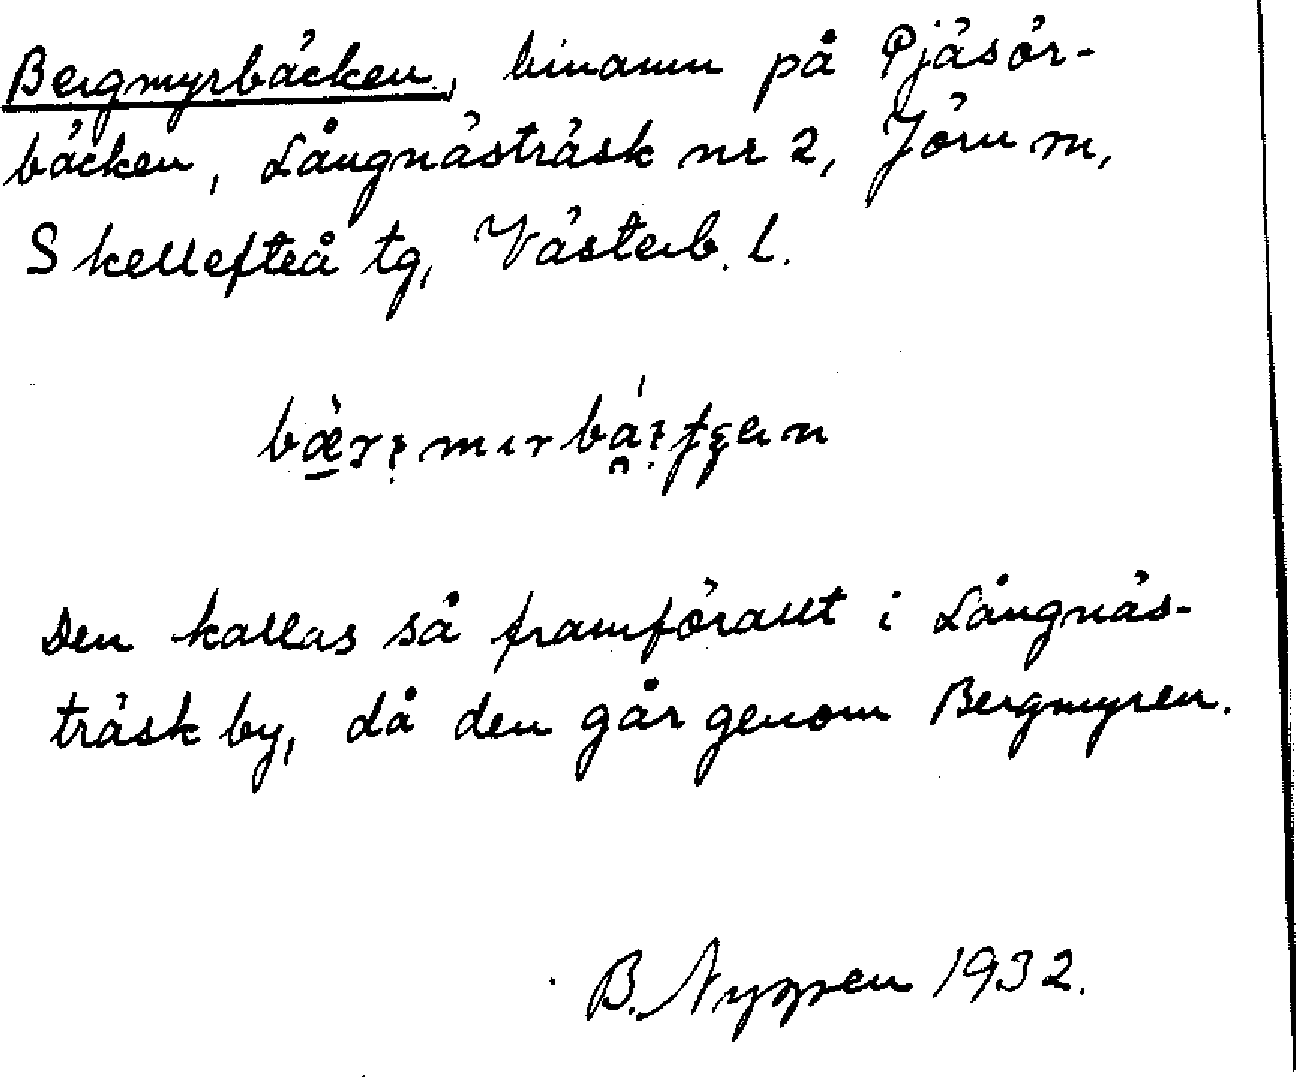 Bergmyrbäcken, binamn på Pjäsör-
bäcken, Långnästräsk nr 2, Jörn sn,
Skellefteå tg, Västerb. l.
Den kallas så framförallt i Långnäs-
träsk by, då den går genom Bergmyren.
B. Nygren 1932.